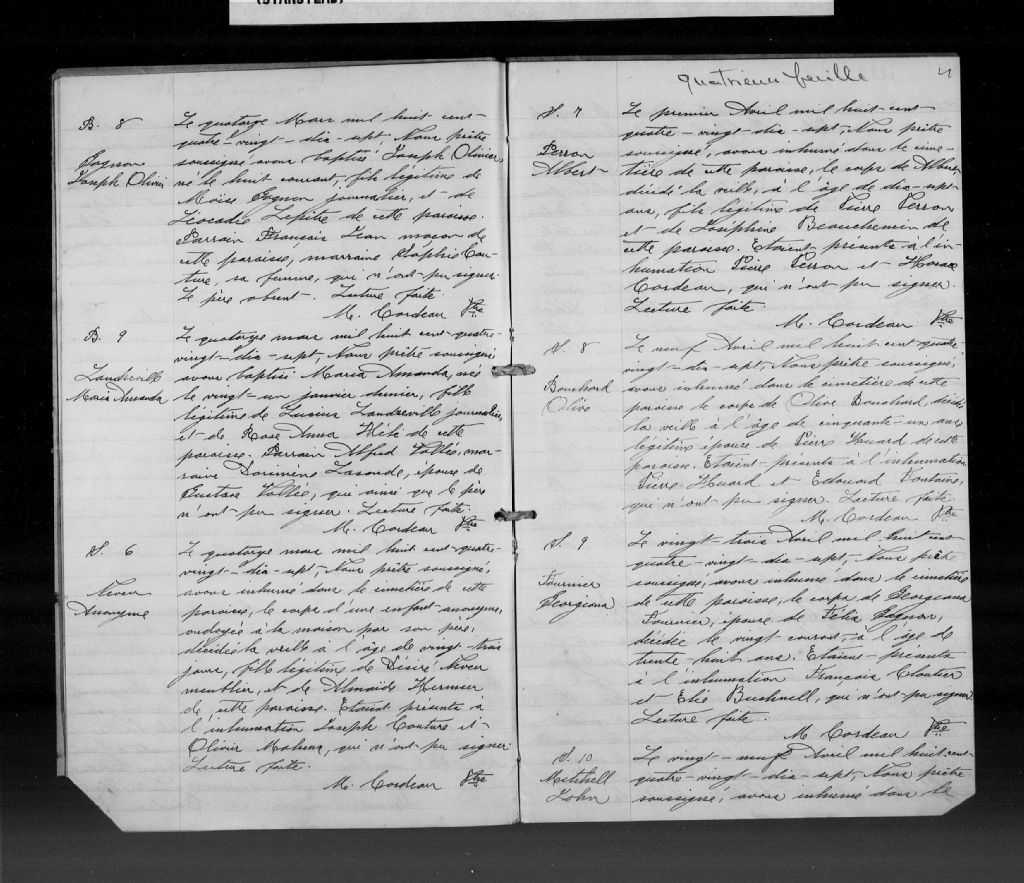 (STANSTEAD)
B. 8
Gagnon
Joseph Olivier
Le quatorze Mars mil huit cent-
quatre-vingt-dix-sept, Nous prêtre
soussigné avons baptisé Joseph Olivier
né le huit courant, fils légitime de
Moïse Gagnon journalier, et de
Léocadie Lepitre de cette paroisse.
Parrain François Jean maçon de
cette paroisse, marraine Sophie Cou-
ture, sa femme, qui n'ont pu signer
Le père absent. Lecture faite.
M. Cordeau Ptre
B. 9
Landreville
Maria Amanda
Le quatorze mars mil huit cent-quatre-
vingt-dix-sept, Nous prêtre soussigné
avons baptisé Maria Amanda, née
le vingt-un janvier dernier, fille
légitime de Lucien Landreville journalier,
et de Rose Anna Hébé de cette
paroisse. Parrain Alfred Vallée, mar-
raine Dorimène Lasonde, épouse de
Gustave Vallée, qui ainsi que le père
n'ont pu signer. Lecture faite.
M. Cordeau Ptre
S. 6
Neveu
Anonyme
Le quatorze mars mil huit cent-quatre-
vingt-dix-sept, Nous prêtre soussigné,
avons inhumé dans le cimetière de cette
paroisse, le corps d'une enfant anonyme,
ondoyée à la maison par son père,
décédée la veille à l'âge de vingt-trois
jours, fille légitime de Désiré Neveu
meublier, et de Almaïde Hermier
de cette paroisse. Etaient présents à
l'inhumation Joseph Couture et
Olivier Maheux, qui n'ont pu signer.
Lecture faite.
M. Cordeau Ptre
quatrieme feuille
4
S. 7
Perron
Albert
Le premier Avril mil huit cent-
quatre-vingt-dix-sept, Nous prêtre
soussigné, avons inhumé dans le cime-
tière de cette paroisse, le corps de Albert,
décédé la veille, à l'âge de dix-sept
ans, fils légitime de Pierre Perron
et de Joséphine Beauchemin de
cette paroisse. Etaient-présents à l'in-
humation Pierre Perron et Horace
Cordeau, qui n'ont pu signer.
Lecture faite.
M. Cordeau Ptre
S. 8
Bouchard
Olive
Le neuf Avril mil huit cent-quatre
vingt-dix-sept, Nous prêtre soussigné,
avons inhumé dans le cimetière de cette
paroisse le corps de Olive Bouchard, décédée
la veille à l'âge de cinquante-un ans
légitime épouse de Pierre Huard de cette
paroisse. Etaient-présents à l'inhumation
Pierre Huard et Edouard Fontaine,
qui n'ont pu signer. Lecture faite.
M. Cordeau Ptre
S. 9
Fournier
Georgiana
Le vingt-trois Avril mil huit cent
quatre-vingt-dix-sept, Nous prêtre
soussigné, avons inhumé dans le cimetière
de cette paroisse, le corps de Georgiana
Fournier, épouse de Félix Gagnon,
décédée le vingt courant, à l'âge de
trente-huit ans. Etaient-présents
à l'inhumation François Cloutier
et Elie Bushnell, qui n'ont pu signer
Lecture faite.
M. Cordeau Ptre
S. 10
Mitchell
John
Le vingt-neuf Avril mil huit cent-
quatre-vingt-dix-sept, Nous prêtre
soussigné, avons inhumé dans le